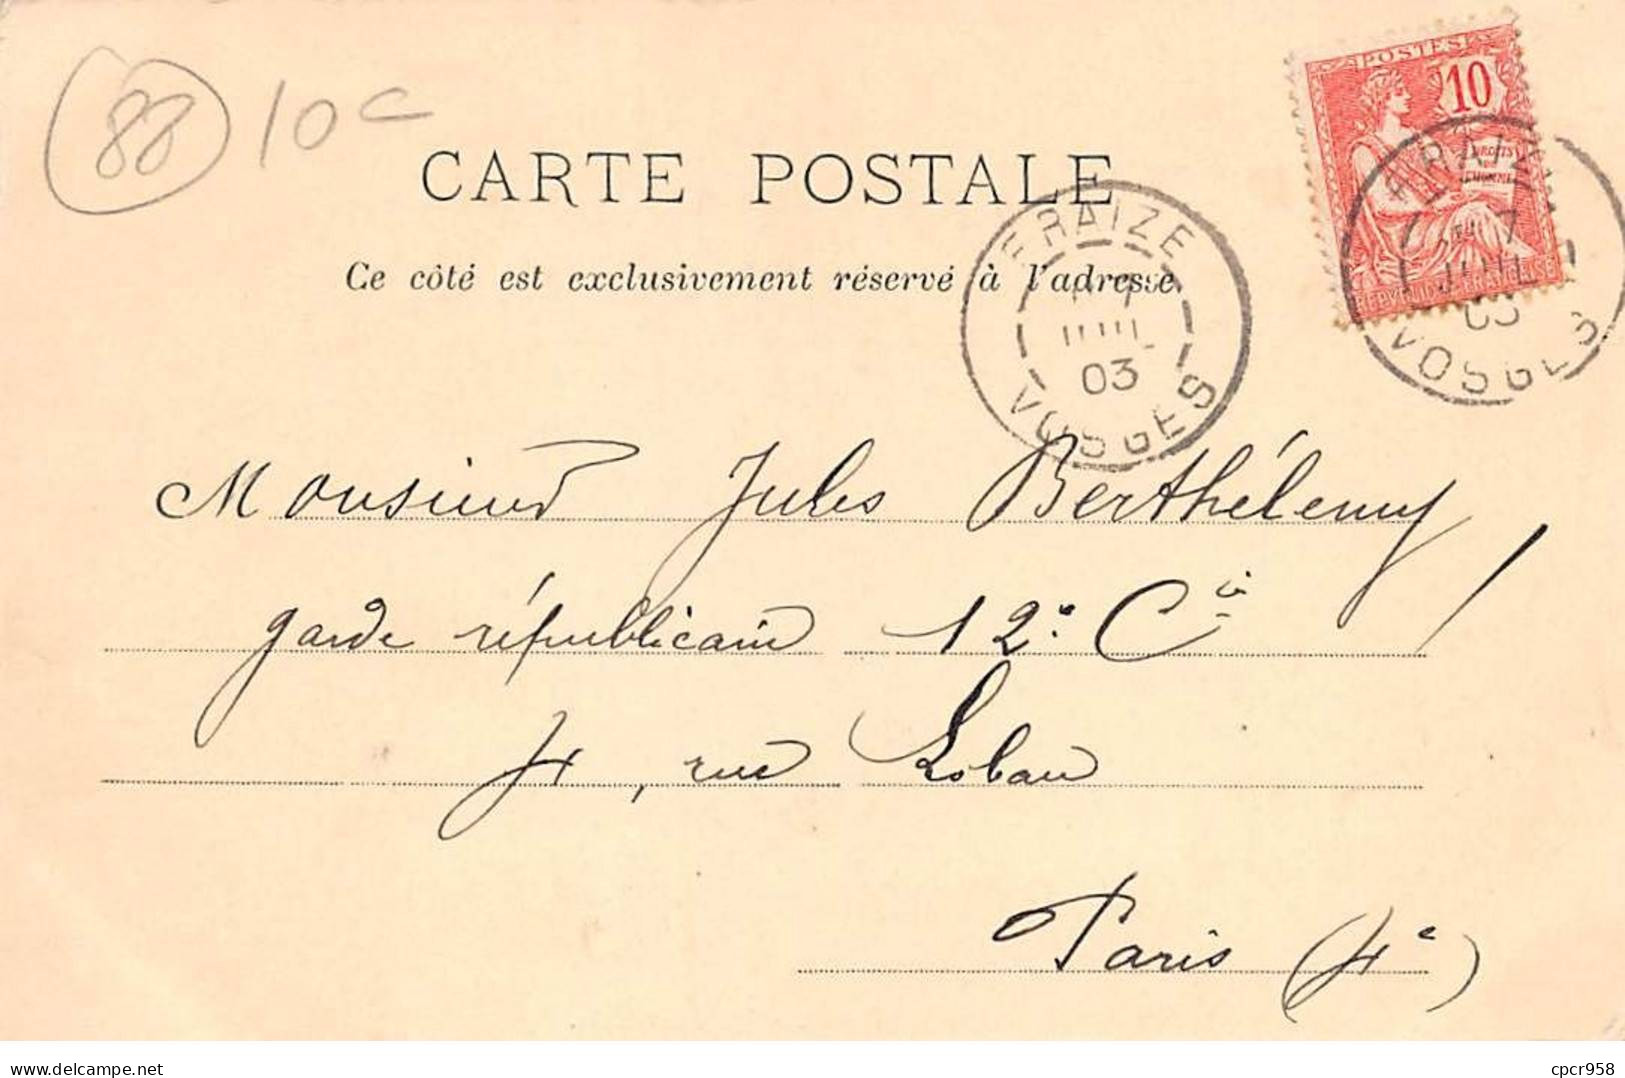 88 10c
CARTE POSTALE
Ce côté est exclusivement réservé à l'adresse
POSTES
10
DROITS DE L'HOMME
REPUBLIQUE FRANÇAISE
FRAIZE
7
JUIL
03
VOSGES
FRAIZE
7
JUIL
03
VOSGES
Monsieur Jules Berthélemy
garde républicain 12e Cie
4, rue Lobau
Paris (4e)
delcampe.net
cpcr958